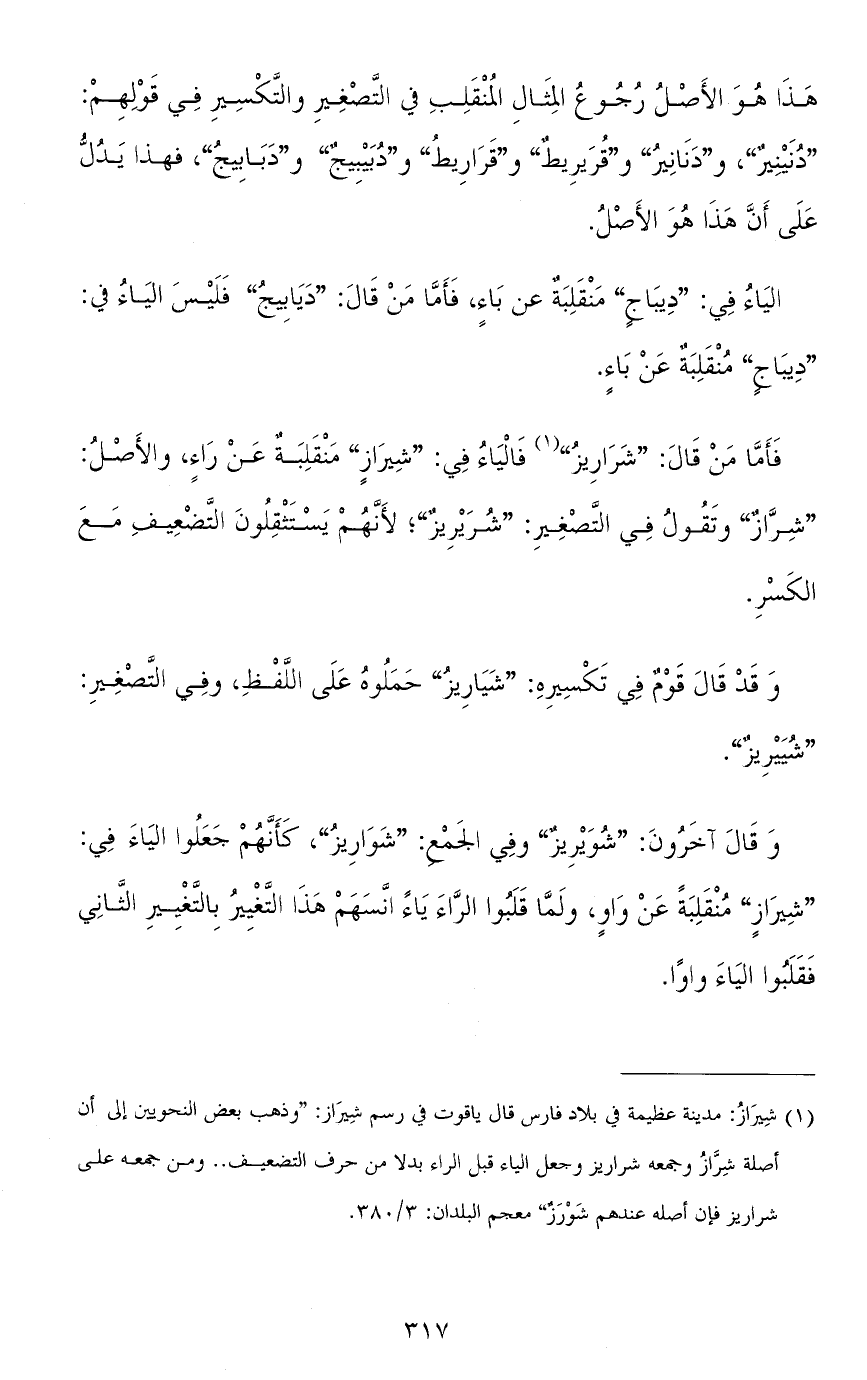 هَذَا هُوَ الأَصْلُ رُجُوعُ المِثَالِ المُنْقَلِبِ في التَّصْغِيرِ والتَّكْسِيرِ فِي قَوْلِهِمْ:
”دُنَيْنِيرٌ“، و”دَنَانِيرُ“ و”قُرَيرِيطٌ“ و”قَرَارِيطُ“ و”دُبَيْبِيجٌ“ و”دَبَابِيجُ“، فهذا يَدُلُّ
عَلَى أَنَّ هَذَا هُوَ الأَصْلُ.
اليَاءُ فِي: ”دِيبَاجٍ“ مَنْقَلِبَةٌ عن بَاءٍ، فَأَمَّا مَنْ قَالَ: ”دَيَابِيجُ“ فَلَيْسَ اليَاءُ في:
”دِيبَاجٍ“ مُنْقَلِبَةٌ عَنْ بَاءٍ.
فَأَمَّا مَنْ قَالَ: ”شَرَارِيزُ“(١) فَالْيَاءُ فِي: ”شِيرَازٍ“ مَنْقَلِبَةٌ عَنْ رَاءٍ، والأَصْلُ:
”شِرَّازٌ“ وتَقُولُ فِي التَّصْغِيرِ: ”شُرَيْرِيزٌ“؛ لأَنَّهُمْ يَسْتَثْقِلُونَ التَّضْعِيفِ مَعَ
الكَسْرِ.
وَ قَدْ قَالَ قَوْمٌ فِي تَكْسِيرِهِ: ”شَيَارِيزُ“ حَمَلُوهُ عَلَى اللَّفْظِ، وفِي التَّصْغِيرِ:
”شُيَيْرِيزٌ“.
وَ قَالَ آخَرُونَ: ”شُوَيْرِيزٌ“ وفِي الجَمْعِ: ”شَوَارِيزُ“، كَأَنَّهُمْ جَعَلُوا اليَاءَ فِي:
”شِيرَازٍ“ مُنْقَلِبَةً عَنْ وَاوٍ، ولَمَّا قَلَبُوا الرَّاءَ يَاءً انَّسَهَمْ هَذَا التَّغْيِيرُ بِالتَّغْيِيرِ الثَّانِي
فَقَلَبُوا اليَاءَ واوًا.
(١) شِيرَازُ: مدينة عظيمة في بلاد فارس قال ياقوت في رسم شِيرَاز: ”وذهب بعض النحويين إلى أن
أصلة شِرَّازُ وجمعه شراريز وجعل الياء قبل الراء بدلا من حرف التضعيف.. ومن جمعه على
شراريز فإن أصله عندهم شَوْرَزٌ“ معجم البلدان: ٣٨٠/٣.
٣١٧